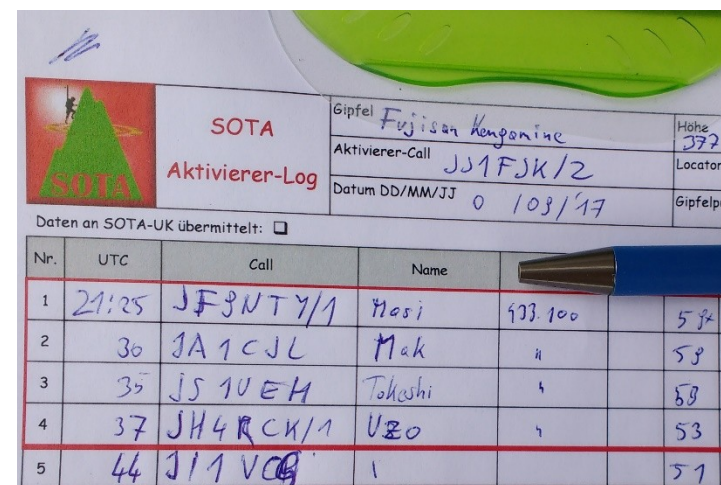 SOTA
SOTA
Aktivierer-Log
Gipfel Fujisan Kengamine
Höhe 377
Aktivierer-Call JJ1FJK/2
Locator
Datum DD/MM/JJ 0 /09/'17
Gipfelp
Daten an SOTA-UK übermittelt:
Nr. UTC Call Name
1 21:25 JF9NTY/1 Masi 433.100 59+
2 30 JA1CJL Mak " 59
3 35 JS1UEH Takeshi " 59
4 37 JH4RCK/1 UZO " 53
5 44 51